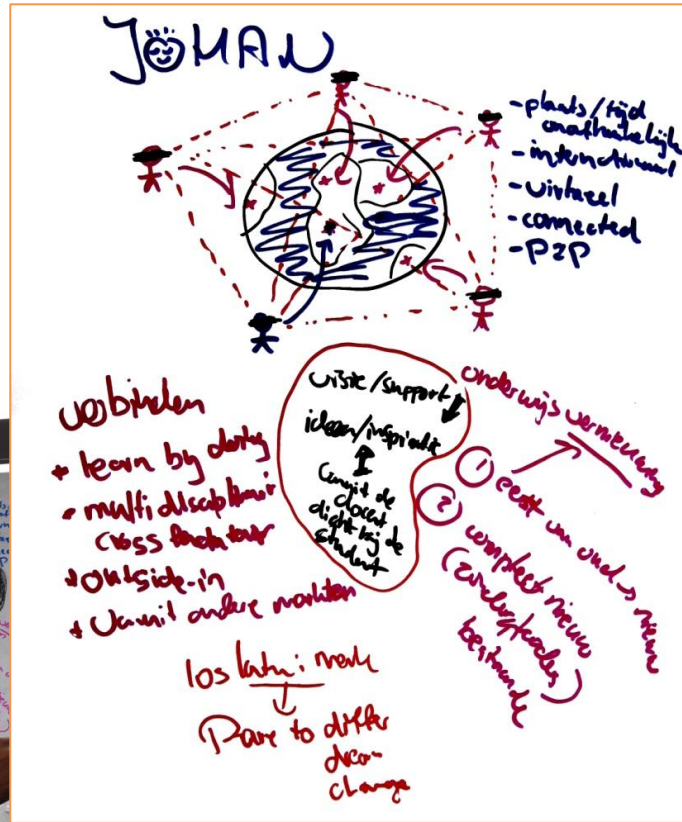 JOHAN
- plaats/tijd
onafhankelijk
- internationaal
- virtueel
- connected
- P2P
verbinden
* learn by doing
* multidisciplinair
cross
* outside-in
* vanuit andere markten
visie/support
ideeen/inspiratie
vanuit de
docent
dicht bij de
student
onderwijs vernieuwing
① eerst van oud → nieuw
② compleet nieuw
(zonder
bestaande
los laten: merk
Dare to differ
dream
change